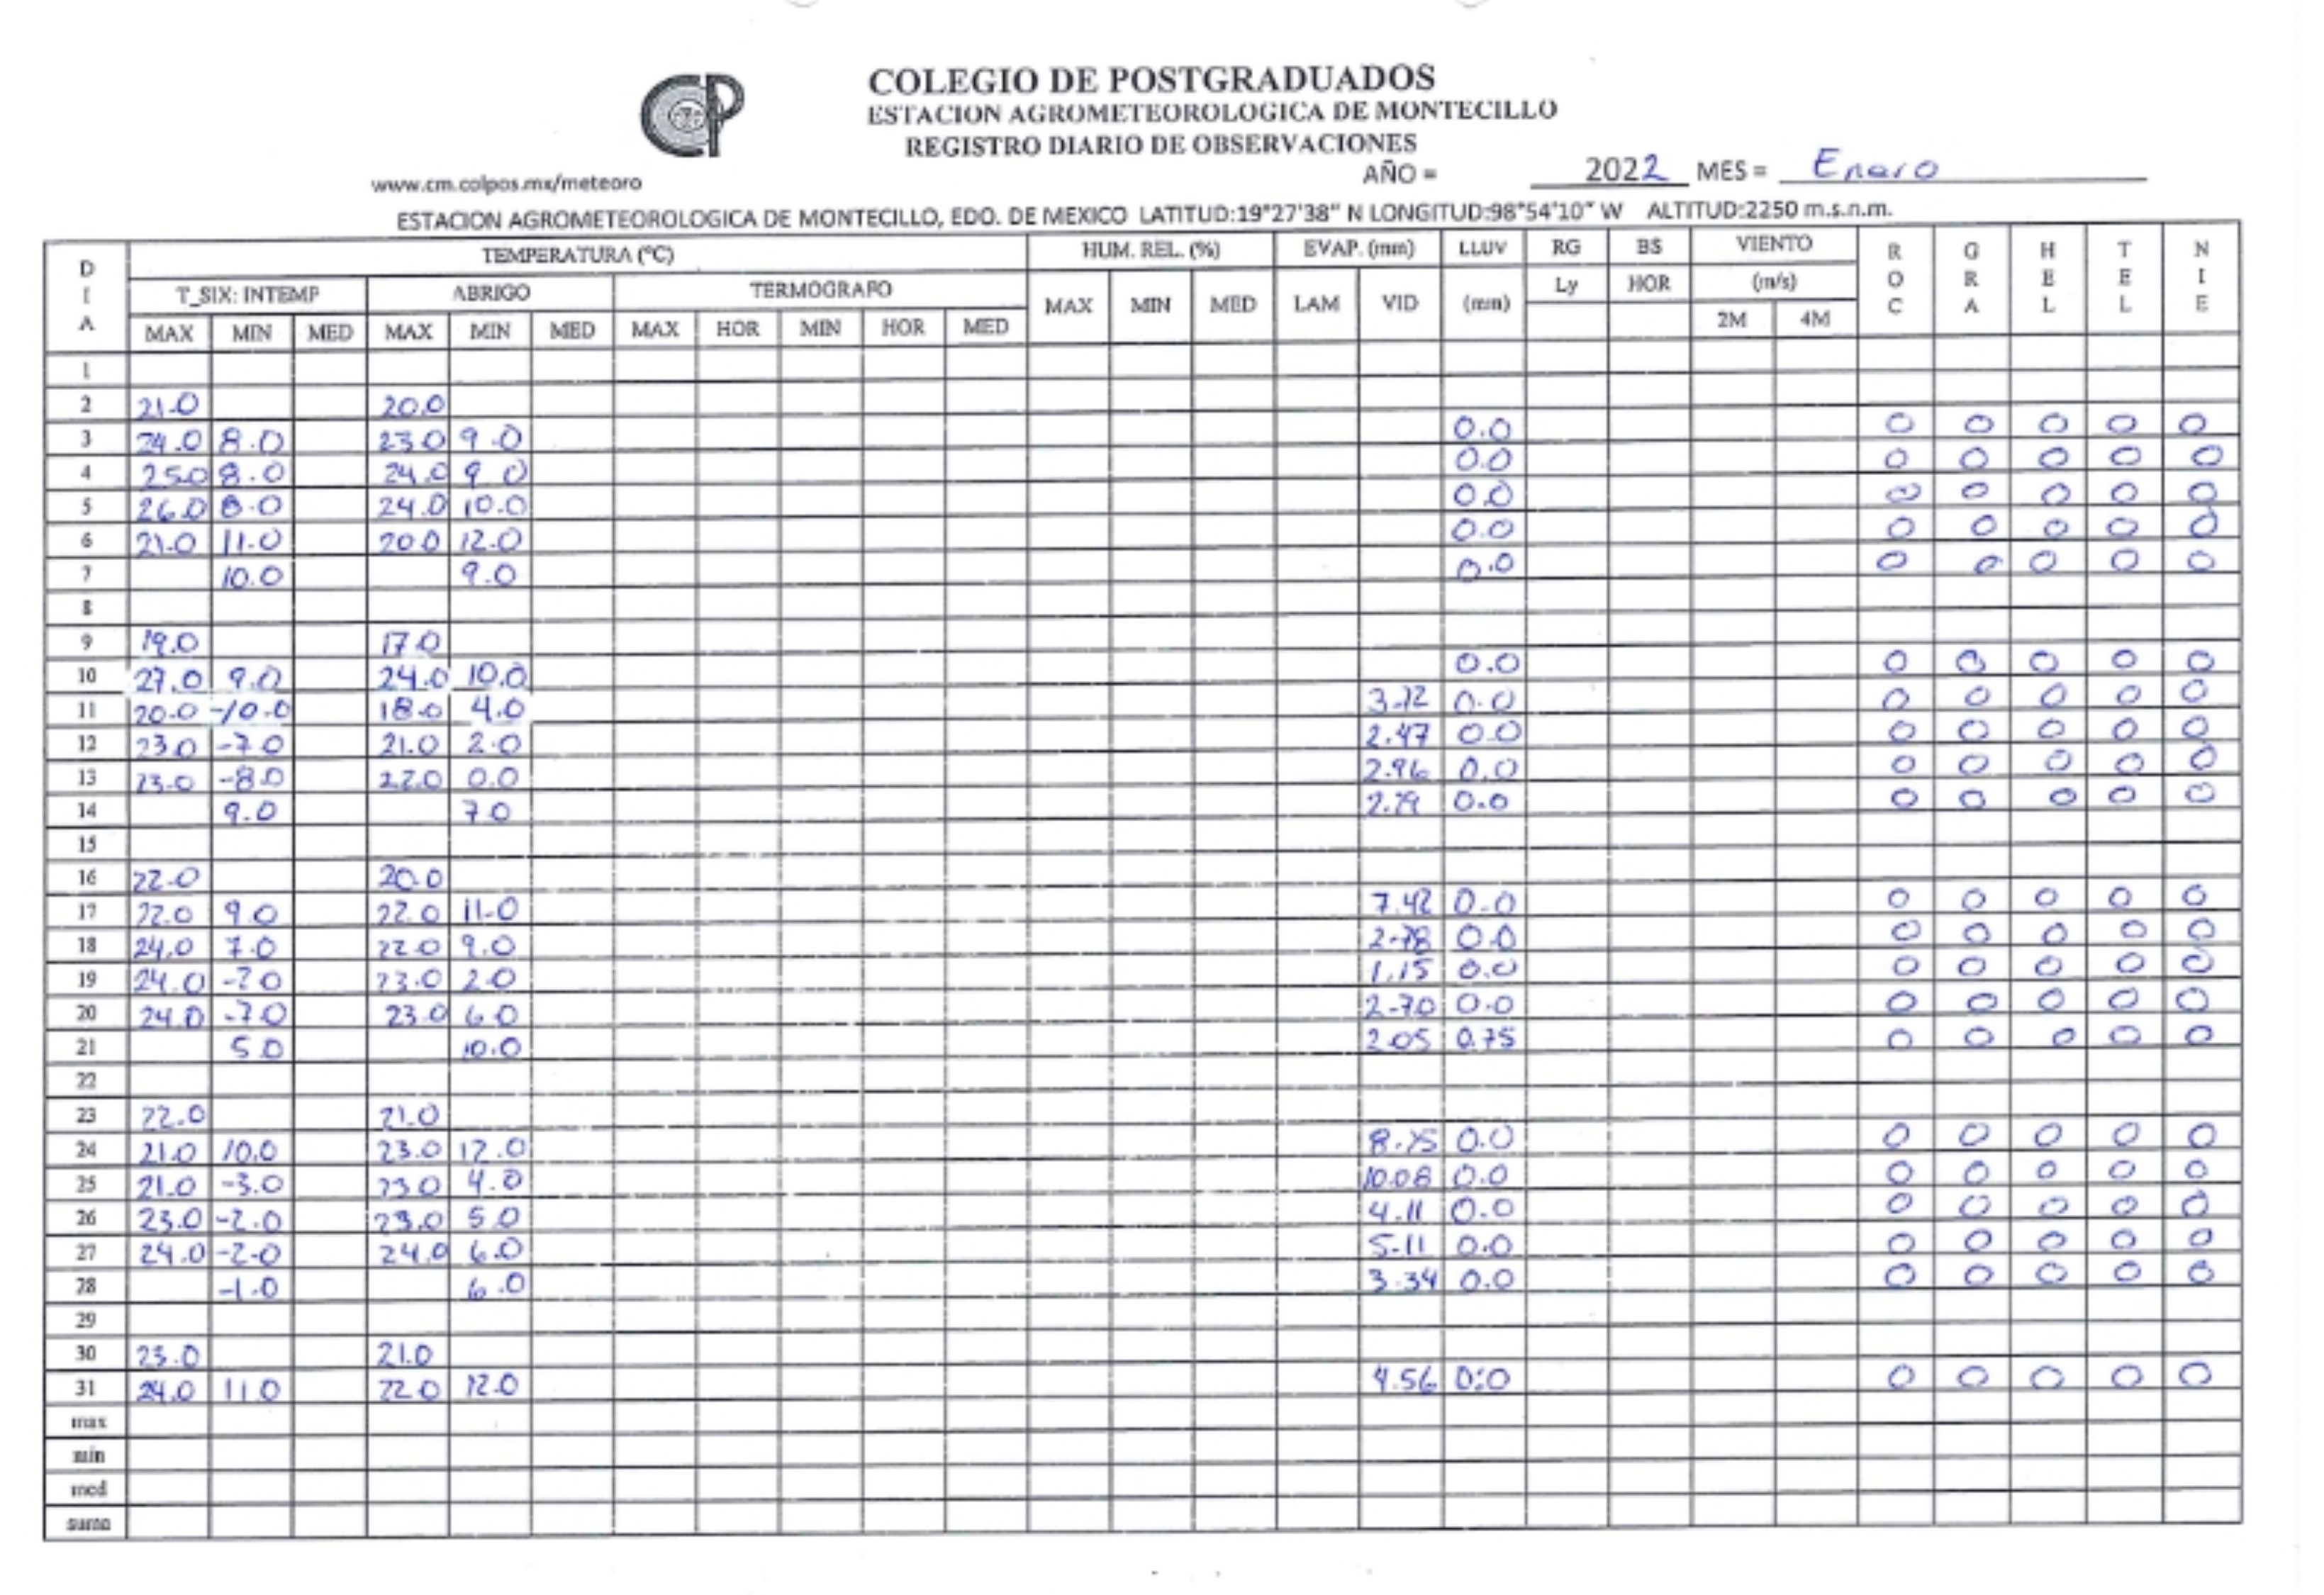 COLEGIO DE POSTGRADUADOS
ESTACION AGROMETEOROLOGICA DE MONTECILLO
REGISTRO DIARIO DE OBSERVACIONES
www.cm.colpos.mx/meteoro AÑO = 2022 MES = Enero
ESTACION AGROMETEOROLOGICA DE MONTECILLO, EDO. DE MEXICO LATITUD:19°27'38" N LONGITUD:98°54'10" W ALTITUD:2250 m.s.n.m.
DIA TEMPERATURA (°C) HUM. REL. (%) EVAP. (mm) LLUV RG BS VIENTO ROC GRA HEL TEL NIE
T_SIX: INTEMP ABRIGO TERMOGRAFO MAX MIN MED LAM VID (mm) Ly HOR (m/s)
MAX MIN MED MAX MIN MED MAX HOR MIN HOR MED 2M 4M
1
2 21.0 20.0
3 24.0 8.0 23.0 9.0 0.0 0 0 0 0 0
4 25.0 8.0 24.0 9.0 0.0 0 0 0 0 0
5 26.0 8.0 24.0 10.0 0.0 0 0 0 0 0
6 21.0 11.0 20.0 12.0 0.0 0 0 0 0 0
7 10.0 9.0 0.0 0 0 0 0 0
8
9 19.0 17.0
10 27.0 9.0 24.0 10.0 0.0 0 0 0 0 0
11 20.0 -10.0 18.0 4.0 3.12 0.0 0 0 0 0 0
12 23.0 -7.0 21.0 2.0 2.47 0.0 0 0 0 0 0
13 23.0 -8.0 22.0 0.0 2.96 0.0 0 0 0 0 0
14 9.0 7.0 0.0 0 0 0 0 0
15
16 22.0 20.0
17 22.0 9.0 22.0 11.0 7.42 0.0 0 0 0 0 0
18 24.0 7.0 22.0 9.0 2.78 0.0 0 0 0 0 0
19 24.0 23.0 2.0 1.15 0.0 0 0 0 0 0
20 24.0 -7.0 23.0 6.0 2.70 0.0 0 0 0 0 0
21 5.0 10.0 2.05 0.75 0 0 0 0 0
22
23 22.0 21.0
24 21.0 10.0 23.0 12.0 0.0 0 0 0 0 0
25 21.0 -3.0 23.0 4.0 10.08 0.0 0 0 0 0 0
26 23.0 -2.0 23.0 5.0 4.11 0.0 0 0 0 0 0
27 24.0 -2.0 24.0 6.0 5.11 0.0 0 0 0 0 0
28 -1.0 6.0 3.34 0.0 0 0 0 0 0
29
30 23.0 21.0
31 24.0 11.0 22.0 12.0 4.56 0.0 0 0 0 0 0
max
min
med
suma